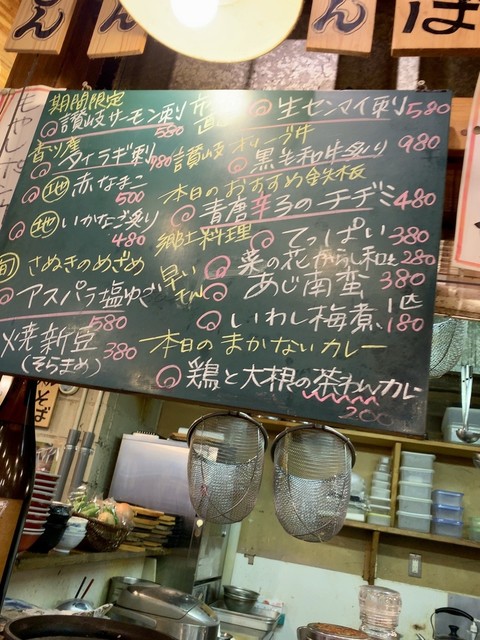 期間限定
讃岐サーモン刺 580
香川産
タイラギ刺 980
地 赤なまこ 500
地 いかなご炙り 480
旬 さぬきのめざめ
アスパラ塩ゆで 580
焼新豆 380
(そらまめ)
生センマイ刺 580
讃岐オリーブ牛
黒毛和牛炙り 980
本日のおすすめ鉄板
青唐辛子のチヂミ 480
郷土料理
てっぱい 380
早い
もん
菜の花からし和え 280
あじ南蛮 380
いわし梅煮 1匹 180
本日のまかないカレー
鶏と大根の茶わんカレー 200
そば